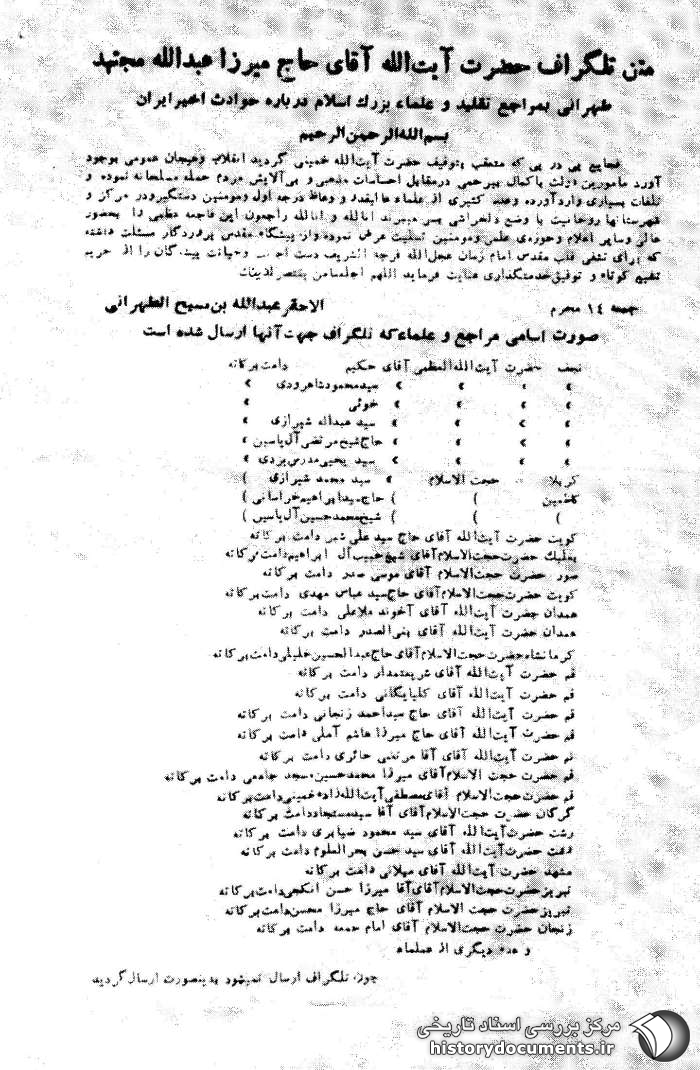 متن تلگراف حضرت آیت‌الله آقای حاج میرزا عبدالله مجتهد
طهرانی بمراجع تقلید و علماء بزرك اسلام درباره حوادث اخیر ایران
بسم‌الله‌الرحمن‌الرحیم
فجایع پی در پی که متعقب بتوقیف حضرت آیت‌الله خمینی گردید انقلاب وهیجان عمومی بوجود
آورد مأمورین دولت باکمال بیرحمی درمقابل احساسات مذهبی و بی‌آلایش مردم حمله مسلحانه نموده و
تلفات بسیاری وارد آورده وعده کثیری از علماء و وعاظ درجه اول ومؤمنین دستگیر ودر مرکز و
شهرستانها روحانیت با وضع دلخراشی بسر میبرند انالله و اناالیه راجعون این فاجعه عظمی را بحضور
عالی وسایر اعلام وحوزه‌ی علمی ومؤمنین تسلیت عرض نموده واز پیشگاه مقدس پروردگار مسئلت داشته
که برای تشفی قلب مقدس امام زمان عجل‌الله فرجه الشریف دست وخیانت پیشگان را از حریم
تشیع کوتاه و توفیق خدمتگذاری عنایت فرماید اللهم اجعلنا ممن ینتصر لدینك
جمعه ۱۴ محرم الاحقر عبدالله بن مسیح الطهرانی
صورت اسامی مراجع و علماء که تلگراف جهت آنها ارسال شده است
نجف حضرت آیت‌الله‌العظمی آقای حکیم دامت برکاته
» » » » سیدمحمود شاهرودی »
» » » » خوئی »
» » » » سید عبداله شیرازی »
» » » » حاج شیخ مرتضی آل یاسین »
» » » » سید یحیی مدرس یزدی »
کربلا » حجت الاسلام » سید محمد شیرازی »
کاظمین » » حاج سید ابراهیم خراسانی »
» » » شیخ محمد حسین آل یاسین »
کویت حضرت آیت‌الله آقای حاج سید علی شبر دامت برکاته
بعلبك حضرت حجت‌الاسلام آقای شیخ حبیب آل ابراهیم دامت برکاته
صور حضرت حجت‌الاسلام آقای موسی صدر دامت برکاته
کویت حضرت حجت‌الاسلام آقای حاج سید عباس مهدی دامت برکاته
همدان حضرت آیت‌الله آقای آخوند ملاعلی دامت برکاته
همدان حضرت آیت‌الله آقای بنی‌الصدر دامت برکاته
کرمانشاه حضرت حجت‌الاسلام آقای حاج عبدالحسین خلیلی دامت برکاته
قم حضرت آیت‌الله آقای شریعتمدار دامت برکاته
قم حضرت آیت‌الله آقای گلپایگانی دامت برکاته
قم حضرت آیت‌الله آقای حاج سید احمد زنجانی دامت برکاته
قم حضرت آیت‌الله آقای حاج میرزا هاشم آملی دامت برکاته
قم حضرت آیت‌الله آقای آقا مرتضی حائری دامت برکاته
قم حضرت حجت الاسلام آقای میرزا محمدحسین مسجد جامعی دامت برکاته
قم حضرت حجت‌الاسلام آقای مصطفی آیت‌الله زاده خمینی دامت برکاته
گرگان حضرت حجت‌الاسلام آقای آقا سید سجاد دامت برکاته
رشت حضرت آیت‌الله آقای سید محمود ضیابری دامت برکاته
رشت حضرت آیت‌الله آقای سید حسن بحرالعلوم دامت برکاته
مشهد حضرت آیت‌الله آقای میلانی دامت برکاته
تبریز حضرت حجت‌الاسلام آقای آقا میرزا حسن انگجی دامت برکاته
تبریز حضرت حجت الاسلام آقای حاج میرزا محسن دامت برکاته
زنجان حضرت حجت‌الاسلام آقای امام جمعه دامت برکاته
و عده دیگری از علماء
چون تلگراف ارسال نمیشود بدینصورت ارسال گردید
مرکز بررسی اسناد تاریخی
historydocuments.ir